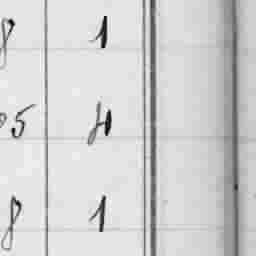 8 1
05 4
8 1